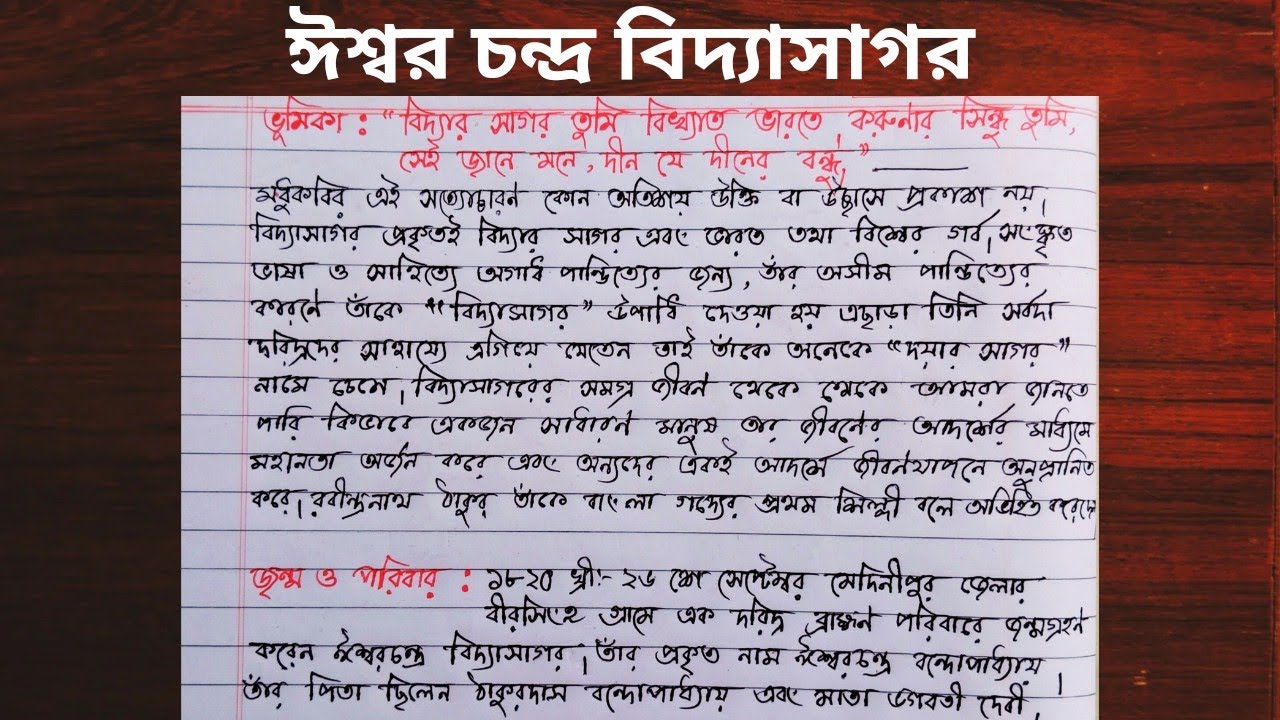 ঈশ্বর চন্দ্র বিদ্যাসাগর
ভূমিকা : "বিদ্যার সাগর তুমি বিখ্যাত ভারতে, করুনার সিন্ধু তুমি,
সেই জানে মনে, দীন যে দীনের বন্ধু,"
মধুকবির এই সত্যোচ্চারণ কোন অতিশয় উক্তি বা উচ্ছাসে প্রকাশ নয়।
বিদ্যাসাগর প্রকৃতই বিদ্যার সাগর এবং ভারত তথা বিশ্বের গর্ব। সংস্কৃত
ভাষা ও সাহিত্যে অগাধ পান্ডিত্যের জন্য, তাঁর অসীম পান্ডিত্যের
কারণে তাঁকে "বিদ্যাসাগর" উপাধি দেওয়া হয় এছাড়া তিনি সর্বদা
দরিদ্রদের সাহায্যে এগিয়ে যেতেন তাই তাঁকে অনেকে "দয়ার সাগর"
নামে চেনে। বিদ্যাসাগরের সমগ্র জীবন থেকে থেকে আমরা জানতে
পারি কিভাবে একজন সাধারণ মানুষ তার জীবনের আদর্শের মাধ্যমে
মহানতা অর্জন করে এবং অন্যদের একই আদর্শে জীবনযাপনে অনুপ্রানিত
করে। রবীন্দ্রনাথ ঠাকুর তাঁকে বাংলা গদ্যের প্রথম শিল্পী বলে অভিহিত করেছে
জন্ম ও পরিবার : ১৮২০ খ্রী:- ২৬ শে সেপ্টেম্বর মেদিনীপুর জেলার
বীরসিংহ গ্রামে এক দরিদ্র ব্রাহ্মণ পরিবারে জন্মগ্রহণ
করেন ঈশ্বরচন্দ্র বিদ্যাসাগর। তাঁর প্রকৃত নাম ঈশ্বরচন্দ্র বন্দোপাধ্যায়।
তাঁর পিতা ছিলেন ঠাকুরদাস বন্দোপাধ্যায় এবং মাতা ভগবতী দেবী,